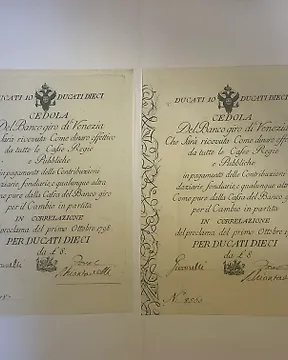 DUCATI 10 DUCATI DIECI
CEDOLA
Del Banco giro di Venezia
sarà ricevuta Come dinaro effettivo
da tutte le Casse Regie
e Pubbliche
in pagamento delle Contribuzioni
daziarie, fondiarie e qualunque altra
Come pure dalla Cassa del Banco giro
per il Cambio in partita
IN CORRELAZIONE
del proclama del primo Ottobre 1798
PER DUCATI DIECI
da L 8
DUCATI 10 DUCATI DIECI
CEDOLA
Del Banco giro di Venezia
Che sarà ricevuta Come dinaro effet
da tutte le Casse Regie
e Pubbliche
in pagamento delle Contribuzioni
daziarie, fondiarie e qualunque altra
Come pure dalla Cassa del Banco giro
per il Cambio in partita
IN CORRELAZIONE
del proclama del primo Ottobre 17
PER DUCATI DIECI
da L 8